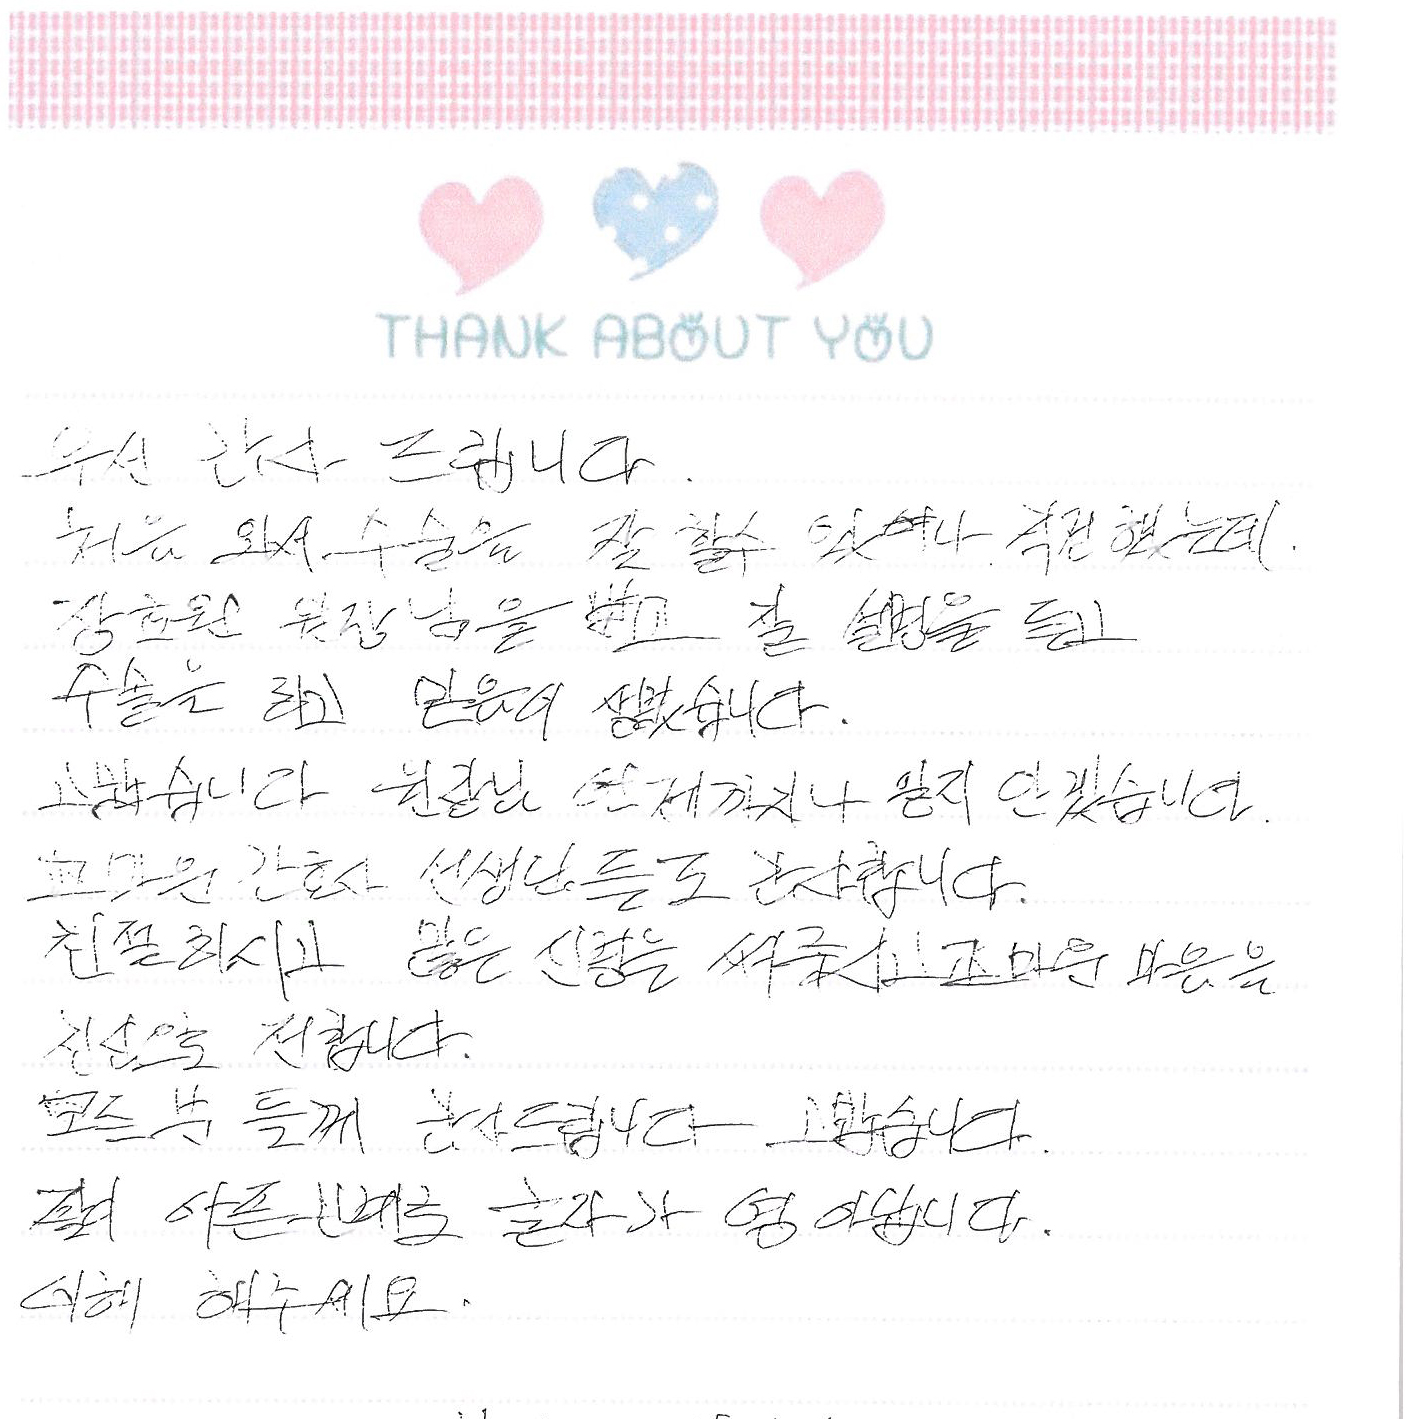 THANK ABOUT YOU
우선 감사 드립니다.
처음 와서 수술을 잘 할수 있여나 걱정했는데.
장호원 원장님을 뵙고 잘 설명을 듣고
수술을 하고 믿음이 생겼습니다.
고맙습니다 원장님 언제까지나 잊지 안겠습니다.
고마운 간호사 선생님들도 감사합니다.
친절하시고 많은 신경을 써주시고 고마운 마음을
진심으로 전합니다.
모든 분 들께 감사드립니다 고맙습니다.
팔이 아픈 글자가 영 아닙니다.
이해 해주세요.